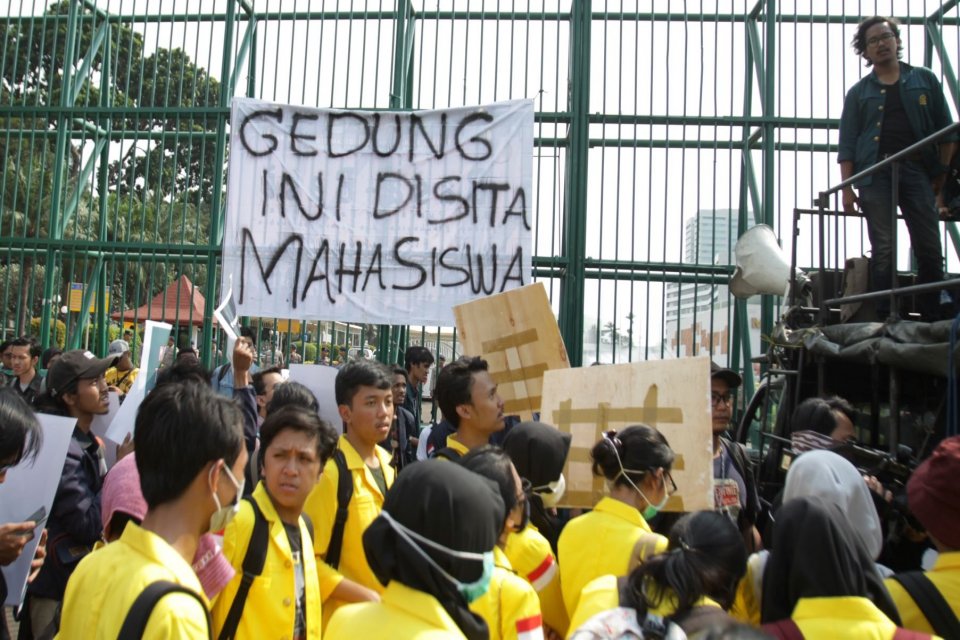 GEDUNG
INI DISITA
MAHASISWA